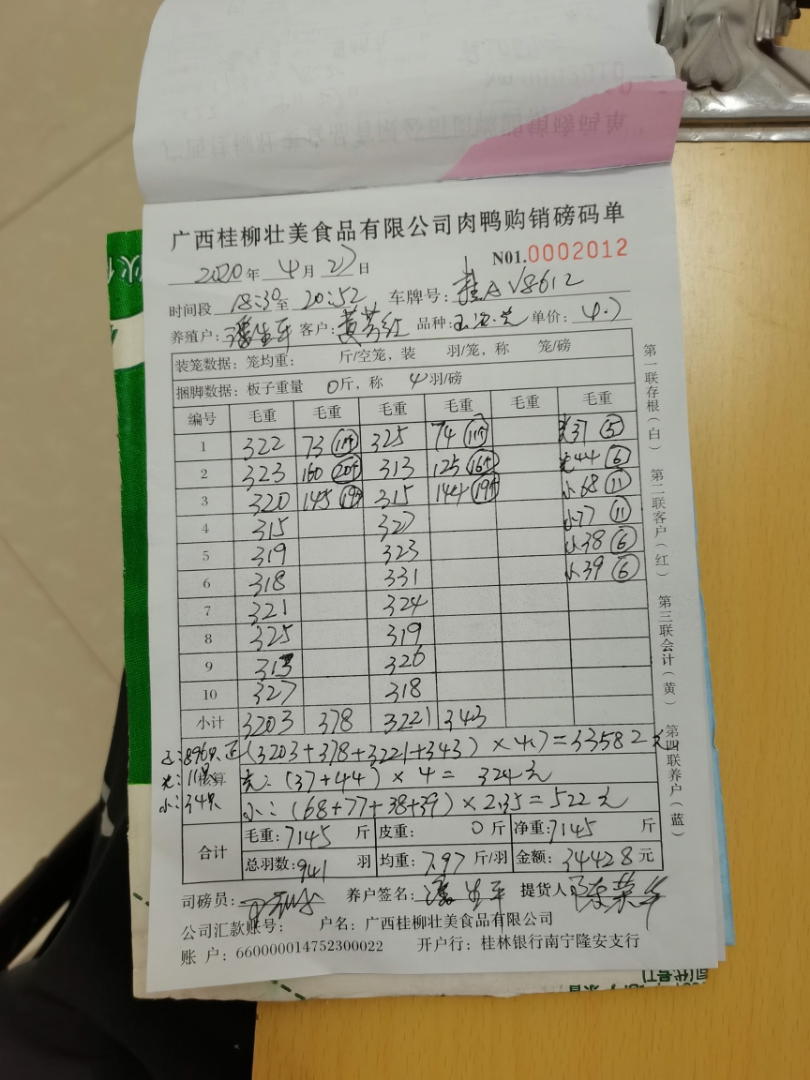 广西桂柳壮美食品有限公司肉鸭购销磅码单
NO1.0002012
2020年 4月 27日
时间段 18:30至 20:52 车牌号: 桂A V8612
养殖户: 客户: 黄芬红 品种: 单价: 4.7
装笼数据: 笼均重: 斤/空笼, 装 羽/笼, 称 笼/磅
捆脚数据: 板子重量 0斤, 称 4羽/磅
编号 毛重 毛重 毛重 毛重 毛重 毛重
1 322 73 325 74 光37 ⑤
2 323 160 313 125 光44 ⑥
3 320 145 315 144 小68 ⑪
4 315 327 小77 ⑪
5 319 323 小38 ⑥
6 318 331 小39 ⑥
7 321 324
8 325 319
9 313 326
10 327 318
小计 3203 378 3221 343
正:896只 正(3203+378+3221+343)×4.7=33582元
光:11只 核算 光:(37+44)×4=324元
小:34只 小:(68+77+38+39)×2.35=522元
合计 毛重:7145 斤 皮重: 0斤 净重:7145 斤
总羽数:941 羽 均重:7.97斤/羽 金额:34428元
司磅员: 养户签名: 提货人
公司汇款账号: 户名: 广西桂柳壮美食品有限公司
账 户: 660000014752300022 开户行: 桂林银行南宁隆安支行
第一联存根(白)
第二联客户(红)
第三联会计(黄)
第四联养户(蓝)